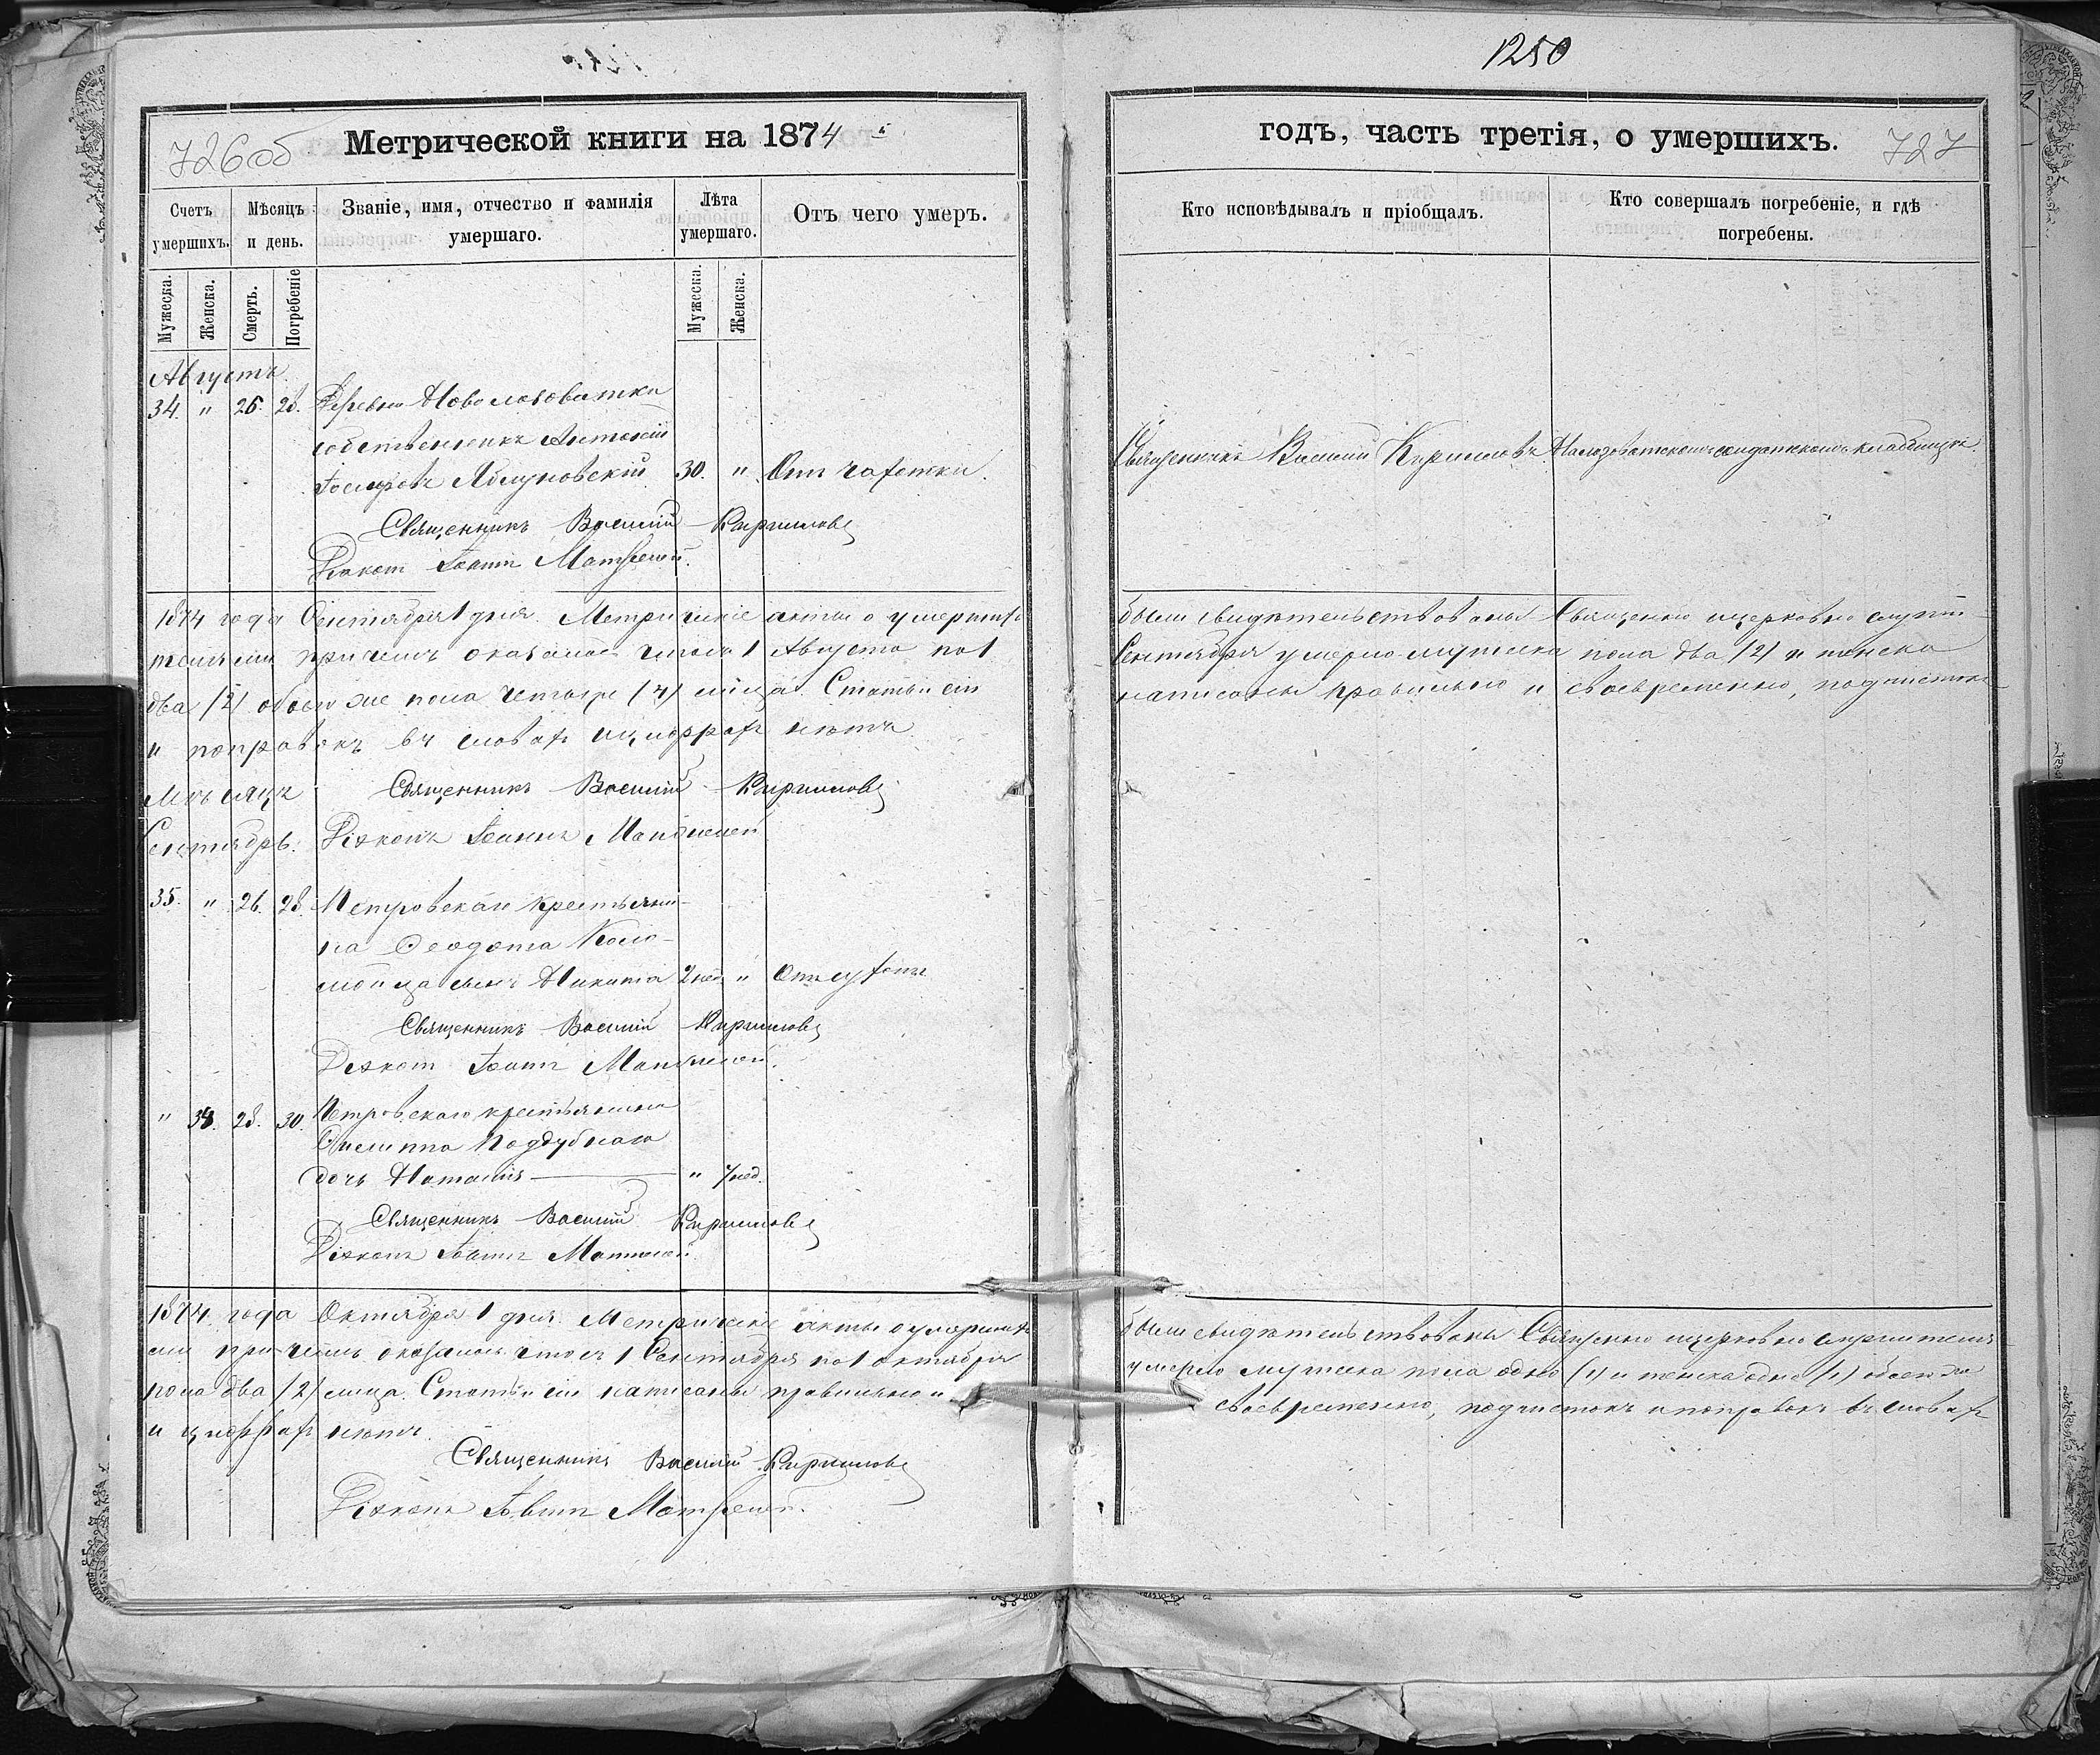 1250
726об
Метрической книги на 1874
годъ, часть третія, о умершихъ.
727
Счетъ умершихъ.
Мѣсяцъ и день.
Званіе, имя, отчество и фамилія умершаго.
Лѣта умершаго.
Отъ чего умеръ.
Кто исповѣдывалъ и пріобщалъ.
Кто совершалъ погребеніе, и гдѣ погребены.
Мужеска.
Женска.
Смерть.
Погребеніе
Мужеска.
Женска.
Августъ
34. " 26. 28. Деревни
собственникъ Антоній
30. " Отъ чахотки.
Священникъ Василій Кириловъ
Священникъ Василій Кириловъ
Діаконъ Іоаннъ
1874 года Сентября 1 дня. Метрическіе акты о умершихъ были свидѣтельствованы Священно и церковно служи-
телями причемъ оказалось что съ 1 Августа по 1 Сентября умерло мужеска пола два (2) и женска
два (2) обоего же пола четыре (4) лица. Статьи сіи написаны правильно и своевременно, подчистокъ
и поправокъ въ словахъ и цифрахъ нѣтъ.
Мѣсяцъ
Священникъ Василій Кириловъ
Сентябрь.
Діаконъ Іоаннъ
35. " 26. 28. Петровскаго крестьяни-
на Ѳеодота Коло-
мойца сынъ Никита 2 нед. " Отъ сухотъ
Священникъ Василій Кириловъ
Діаконъ Іоаннъ
" 34. 28. 30. Петровскаго крестьянина
Филиппа Поддубнаго
дочь Наталія " 7 нед.
Священникъ Василій Кириловъ
Діаконъ Іоаннъ
1874 года Октября 1 дня. Метрическіе акты о умершихъ были свидѣтельствованы Священно и церковно служителя-
ми причемъ оказалось что съ 1 Сентября по 1 Октября умерло мужеска пола одно (1) и женска одно (1) обоего же
пола два (2) лица. Статьи сіи написаны правильно и своевременно, подчистокъ и поправокъ въ словахъ
и цифрахъ нѣтъ.
Священникъ Василій Кириловъ
Діаконъ Іоаннъ